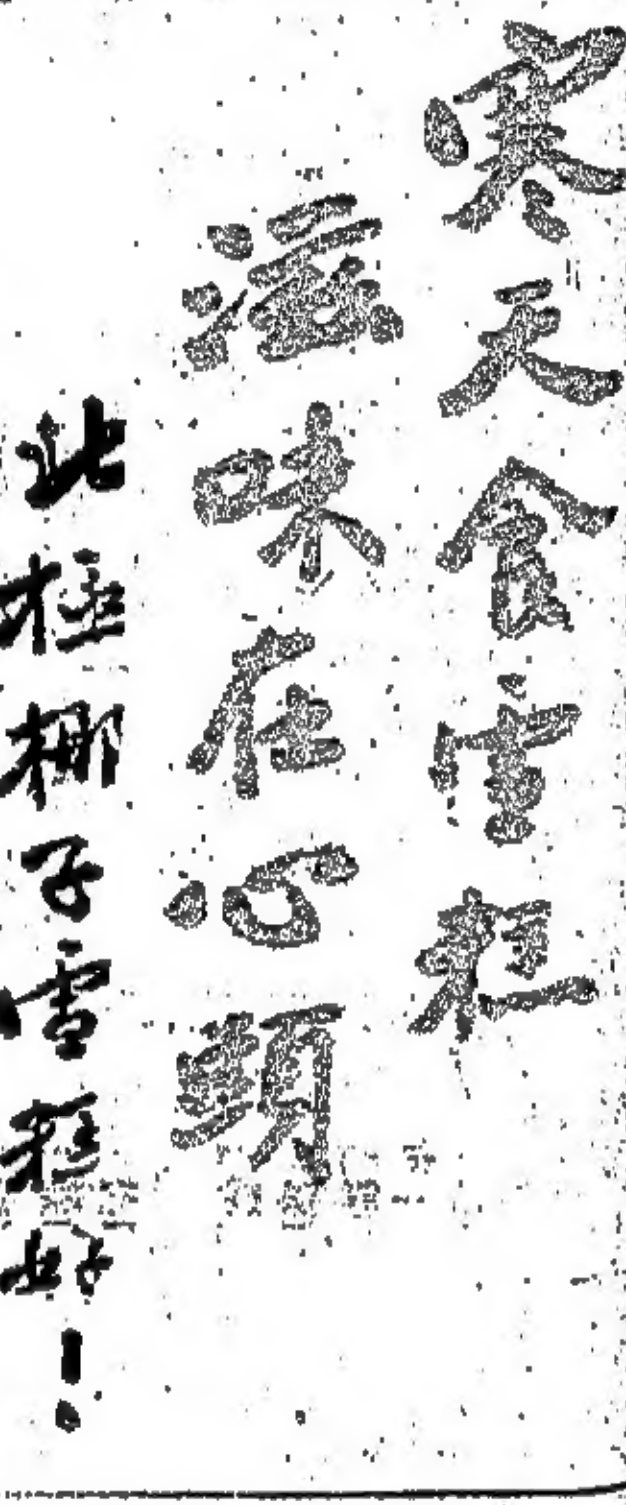 寒天食雪糕
滋味在心頭
北極椰子雪糕好！